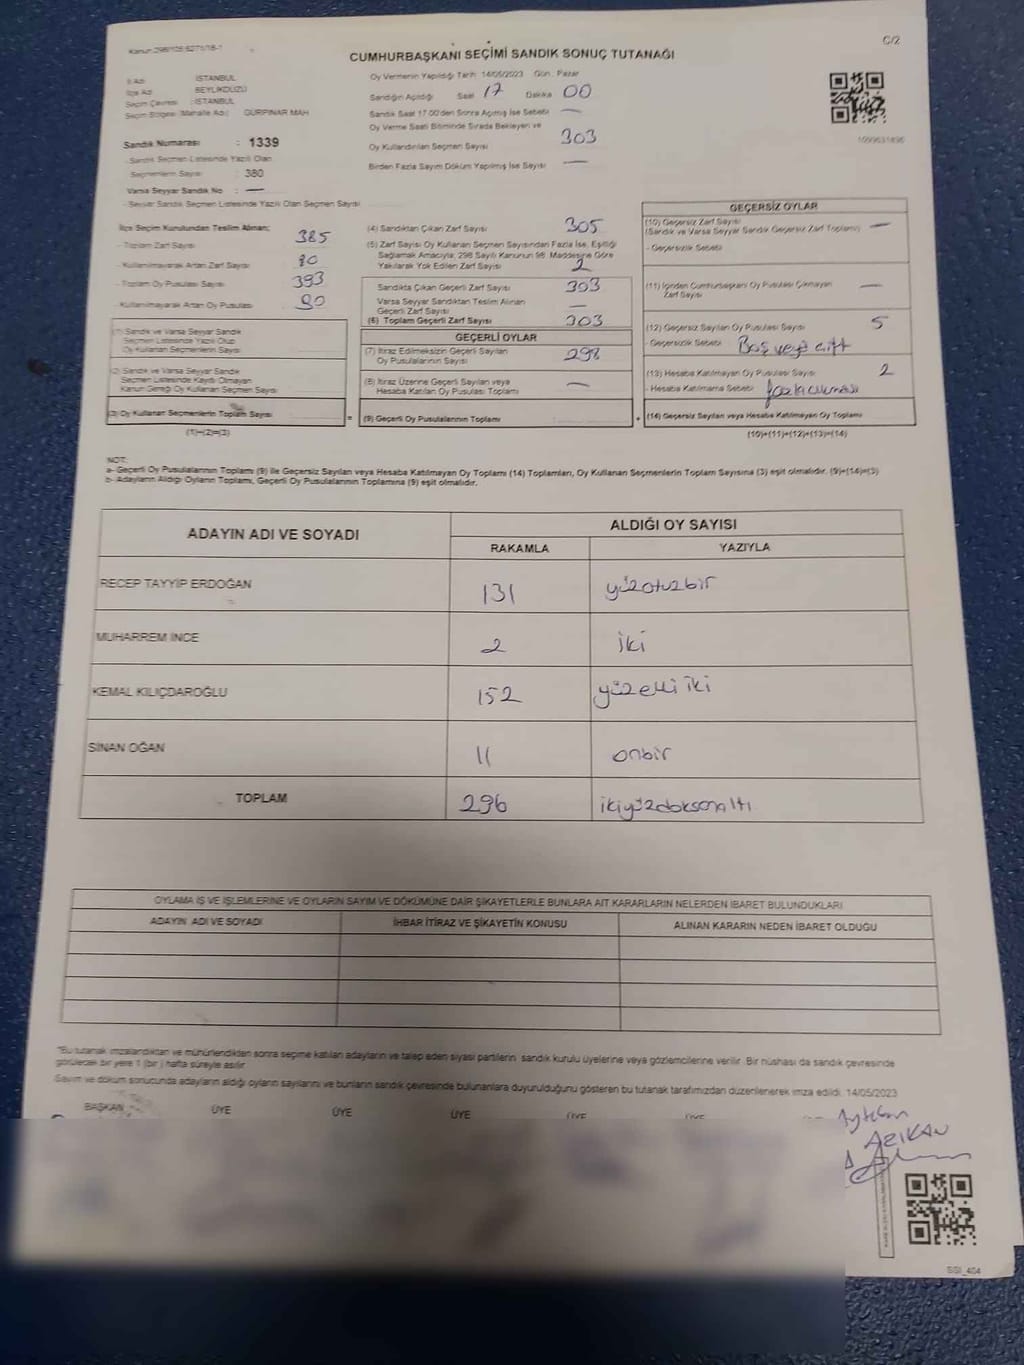 Kanun:298/105;6271/18-1
C/2
CUMHURBAŞKANI SEÇİMİ SANDIK SONUÇ TUTANAĞI
İl Adı : İSTANBUL
İlçe Adı : BEYLİKDÜZÜ
Seçim Çevresi : İSTANBUL
Seçim Bölgesi (Mahalle Adı) : GÜRPINAR MAH
Sandık Numarası : 1339
- Sandık Seçmen Listesinde Yazılı Olan
Seçmenlerin Sayısı : 380
Varsa Seyyar Sandık No : —
- Seyyar Sandık Seçmen Listesinde Yazılı Olan Seçmen Sayısı
Oy Vermenin Yapıldığı Tarih 14/05/2023 Gün : Pazar
Sandığın Açıldığı Saat 17 Dakika 00
Sandık Saat 17.00'den Sonra Açılmış İse Sebebi —
Oy Verme Saati Bitiminde Sırada Bekleyen ve
Oy Kullandırılan Seçmen Sayısı 303
Birden Fazla Sayım Döküm Yapılmış İse Sayısı —
1009631896
İlçe Seçim Kurulundan Teslim Alınan;
- Toplam Zarf Sayısı 385
- Kullanılmayarak Artan Zarf Sayısı 80
- Toplam Oy Pusulası Sayısı 393
- Kullanılmayarak Artan Oy Pusulası 90
(1) Sandık ve Varsa Seyyar Sandık
Seçmen Listesinde Yazılı Olup
Oy Kullanan Seçmenlerin Sayısı
(2) Sandık ve Varsa Seyyar Sandık
Seçmen Listesinde Kaydı Olmayan
Kanun Gereği Oy Kullanan Seçmen Sayısı
(3) Oy Kullanan Seçmenlerin Toplam Sayısı
(1)+(2)=(3)
(4) Sandıktan Çıkan Zarf Sayısı 305
(5) Zarf Sayısı Oy Kullanan Seçmen Sayısından Fazla İse, Eşitliği
Sağlamak Amacıyla; 298 Sayılı Kanunun 98. Maddesine Göre
Yakılarak Yok Edilen Zarf Sayısı 2
Sandıkta Çıkan Geçerli Zarf Sayısı 303
Varsa Seyyar Sandıktan Teslim Alınan
Geçerli Zarf Sayısı —
(6) Toplam Geçerli Zarf Sayısı 303
GEÇERLİ OYLAR
(7) İtiraz Edilmeksizin Geçerli Sayılan
Oy Pusulalarının Sayısı 298
(8) İtiraz Üzerine Geçerli Sayılan veya
Hesaba Katılan Oy Pusulası Toplamı —
= (9) Geçerli Oy Pusulalarının Toplamı
GEÇERSİZ OYLAR
(10) Geçersiz Zarf Sayısı
(Sandık ve Varsa Seyyar Sandık Geçersiz Zarf Toplamı) —
- Geçersizlik Sebebi
(11) İçinden Cumhurbaşkanı Oy Pusulası Çıkmayan
Zarf Sayısı —
(12) Geçersiz Sayılan Oy Pusulası Sayısı 5
- Geçersizlik Sebebi Boş veya çift
(13) Hesaba Katılmayan Oy Pusulası Sayısı 2
- Hesaba Katılmama Sebebi
+ (14) Geçersiz Sayılan veya Hesaba Katılmayan Oy Toplamı
(10)+(11)+(12)+(13)=(14)
NOT:
a- Geçerli Oy Pusulalarının Toplamı (9) ile Geçersiz Sayılan veya Hesaba Katılmayan Oy Toplamı (14) Toplamları, Oy Kullanan Seçmenlerin Toplam Sayısına (3) eşit olmalıdır. (9)+(14)=(3)
b- Adayların Aldığı Oyların Toplamı, Geçerli Oy Pusulalarının Toplamına (9) eşit olmalıdır.
ADAYIN ADI VE SOYADI
ALDIĞI OY SAYISI
RAKAMLA YAZIYLA
RECEP TAYYİP ERDOĞAN 131 yüzotuzbir
MUHARREM İNCE 2 iki
KEMAL KILIÇDAROĞLU 152 yüzelli iki
SİNAN OĞAN 11 onbir
TOPLAM 296 ikiyüzdoksanaltı
OYLAMA İŞ VE İŞLEMLERİNE VE OYLARIN SAYIM VE DÖKÜMÜNE DAİR ŞİKAYETLERLE BUNLARA AİT KARARLARIN NELERDEN İBARET BULUNDUKLARI
ADAYIN ADI VE SOYADI İHBAR İTİRAZ VE ŞİKAYETİN KONUSU ALINAN KARARIN NEDEN İBARET OLDUĞU
"Bu tutanak imzalandıktan ve mühürlendikten sonra seçime katılan adayların ve talep eden siyasi partilerin sandık kurulu üyelerine veya gözlemcilerine verilir. Bir nüshası da sandık çevresinde
görülecek bir yere 1 (bir) hafta süreyle asılır.
Sayım ve döküm sonucunda adayların aldığı oyların sayılarını ve bunların sandık çevresinde bulunanlara duyurulduğunu gösteren bu tutanak tarafımızdan düzenlenerek imza edildi. 14/05/2023
BAŞKAN ÜYE ÜYE ÜYE ÜYE ÜYE
Aytekin
AZIKAN
SSI_404